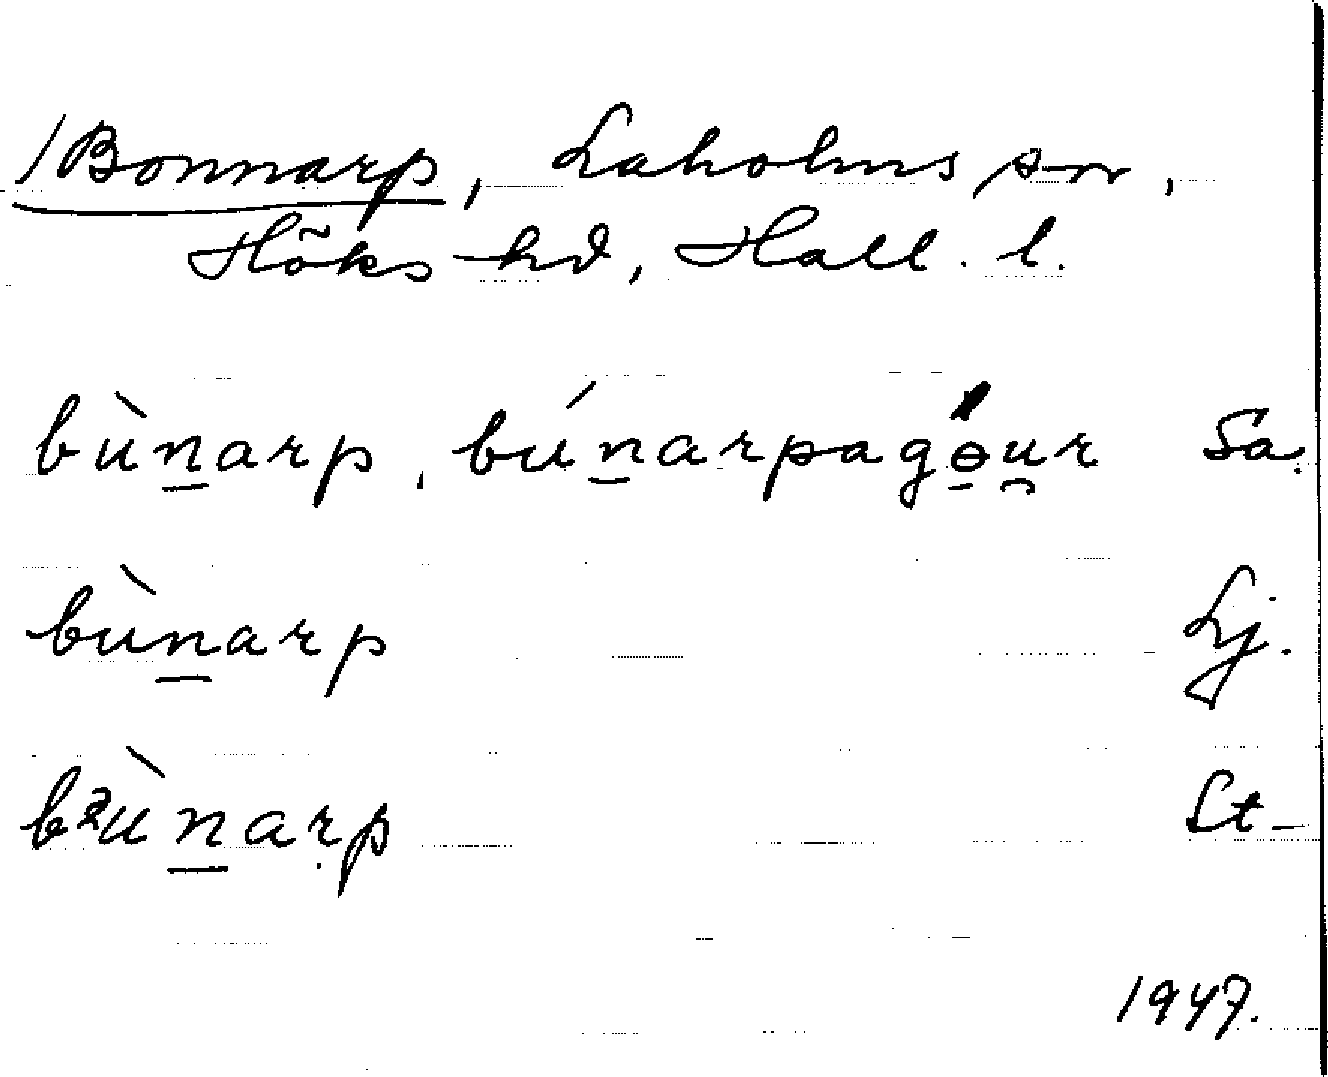 /Bonnarp, Laholms sn,
Höks hd, Hall. l.
bùn̲arp, bún̲arpagə̲́u̯r Sa.
bùn̲arp Lj.
bùn̲arp St
1947.